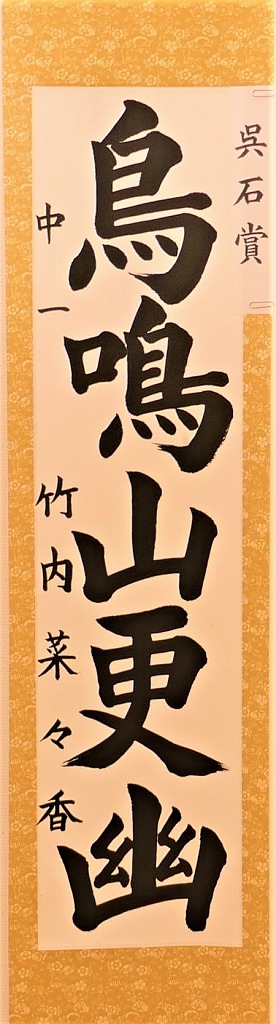 呉石賞
鳥鳴山更幽
中一 竹内菜々香